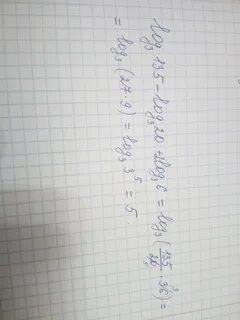 log₃ 135 - log₃ 20 + 2log₃ 6 = log₃ (135/20 · 36) =
= log₃ (27 · 9) = log₃ 3⁵ = 5